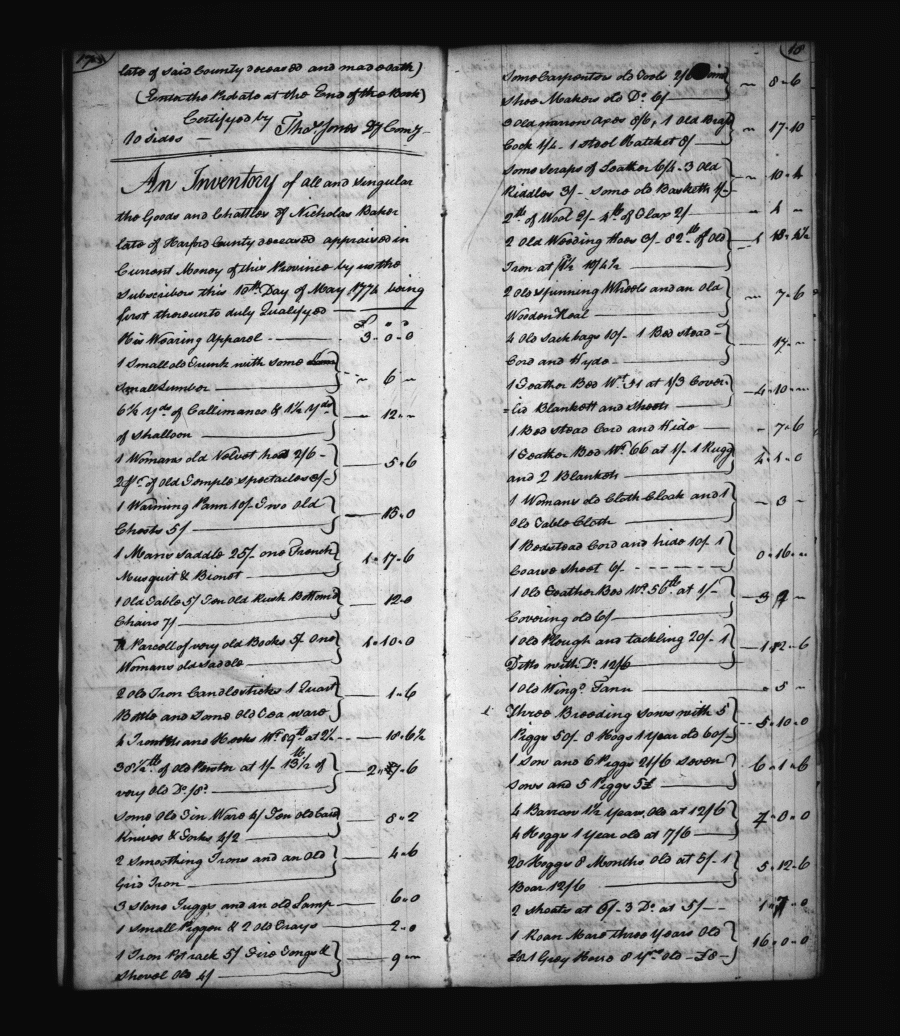 late of said County deceased and made oath)
(Enter the Probate at the End of the Book)
Certifyed by Thos. Jones Dy Comy
10 Sides
An Inventory of all and singular
the Goods and Chattles of Nicholas Baker
late of Harford County deceased appraised in
Current Money of this Province by us the
Subscribers this 10th Day of May 1774 being
first thereunto duly Qualifyed
His Wearing Apparel 3-0-0
1 Small old Trunk with some
small Lumber 6
6½ Yds of Callimanco & 1½ Yds
of Shalloon 12
1 Womans old Velvet hood 2/6
2 ps. of old Temple Spectacles 3/ 5-6
1 Warming Pann 10/- Two old
Chests 5/ 15-0
1 Mans Saddle 25/- one French
Musquit & Bionet 1-17-6
1 Old Table 5/ Ten Old Rush Bottomd
Chairs 7/ 12-0
A Parcell of very old Books 5/- One
Womans old Saddle 1-10-0
2 Old Iron Candlesticks 1 Quart
Bottle and Some Old Tea ware 1-6
4 Iron Potts and Hooks Wt. 89lb at 2½ 18-6½
38½lb of old Pewter at 1/- 13½lb of
very Old Do. /8d. 2-7-6
Some Old Tin Ware 4/ Ten old Case
Knives & Forks 4/2 8-2
2 Smoothing Irons and an Old
Grid Iron 4-6
3 Stone Juggs and an old Lamp 6-0
1 Small Piggon & 2 old Trays 2-0
1 Iron Potrack 5/ Fire Tongs &
Shovel Old 4/ 9
18
Some Carpenters old Tools 2/6 Some
Shoe Makers old Do. 6/ 8-6
3 Old narrow Axes 8/6, 1 Old Brass
Cock 1/4 - 1 Steel Hatchet 8/ 17-10
Some Scraps of Leather 6/4 - 3 Old
Riddles 3/- Some old Basketts 1/- 10-4
2lb of Wool 2/- 4lb of Flax 2/ 4
2 Old Weeding Hoes 3/- 82lb of Old
Iron at 10/4½ 1-13-4½
2 Old Spinning Wheels and an Old
Wooden Reel 7-6
4 Old Sack bags 10/- 1 Bed stead
Cord and Hyde 17-
1 Feather Bed Wt. 54 at 1/3 Cover-
=lid Blankett and Sheets 4-10
1 Bed stead Cord and Hide 7-6
1 Feather Bed Wt. 66 at 1/- 1 Rugg
and 2 Blankets 4-1-0
1 Womans old Cloth Cloak and 1
Old Table Cloth 3
1 Bedstead Cord and hide 10/- 1
Coarse Sheet 6/- 0-16
1 Old Feather Bed Wt. 56lb at 1/-
Covering old 6/ 3
1 Old Plough and tackling 20/- 1
Ditto with Do. 12/6 1-12-6
1 Old Wingd. Fann 5
Three Breeding Sows with 5
Piggs 50/- 8 Hogs 1 year old 60/- 5-10-0
1 Sow and 6 Piggs 21/6 Seven
Sows and 5 Piggs 5£ 6-1-6
4 Barrows 1½ Years Old at 12/6
4 Hoggs 1 Year old at 7/6 4-0-0
20 Hoggs 8 Months old at 5/- 1
Boar 12/6 5-12-6
2 Shoats at 6/- 3 Do. at 5/- 1-7-0
1 Roan Mare three Years Old
£8 1 Grey Horse 8 Yrs. old - £8 16-0-0